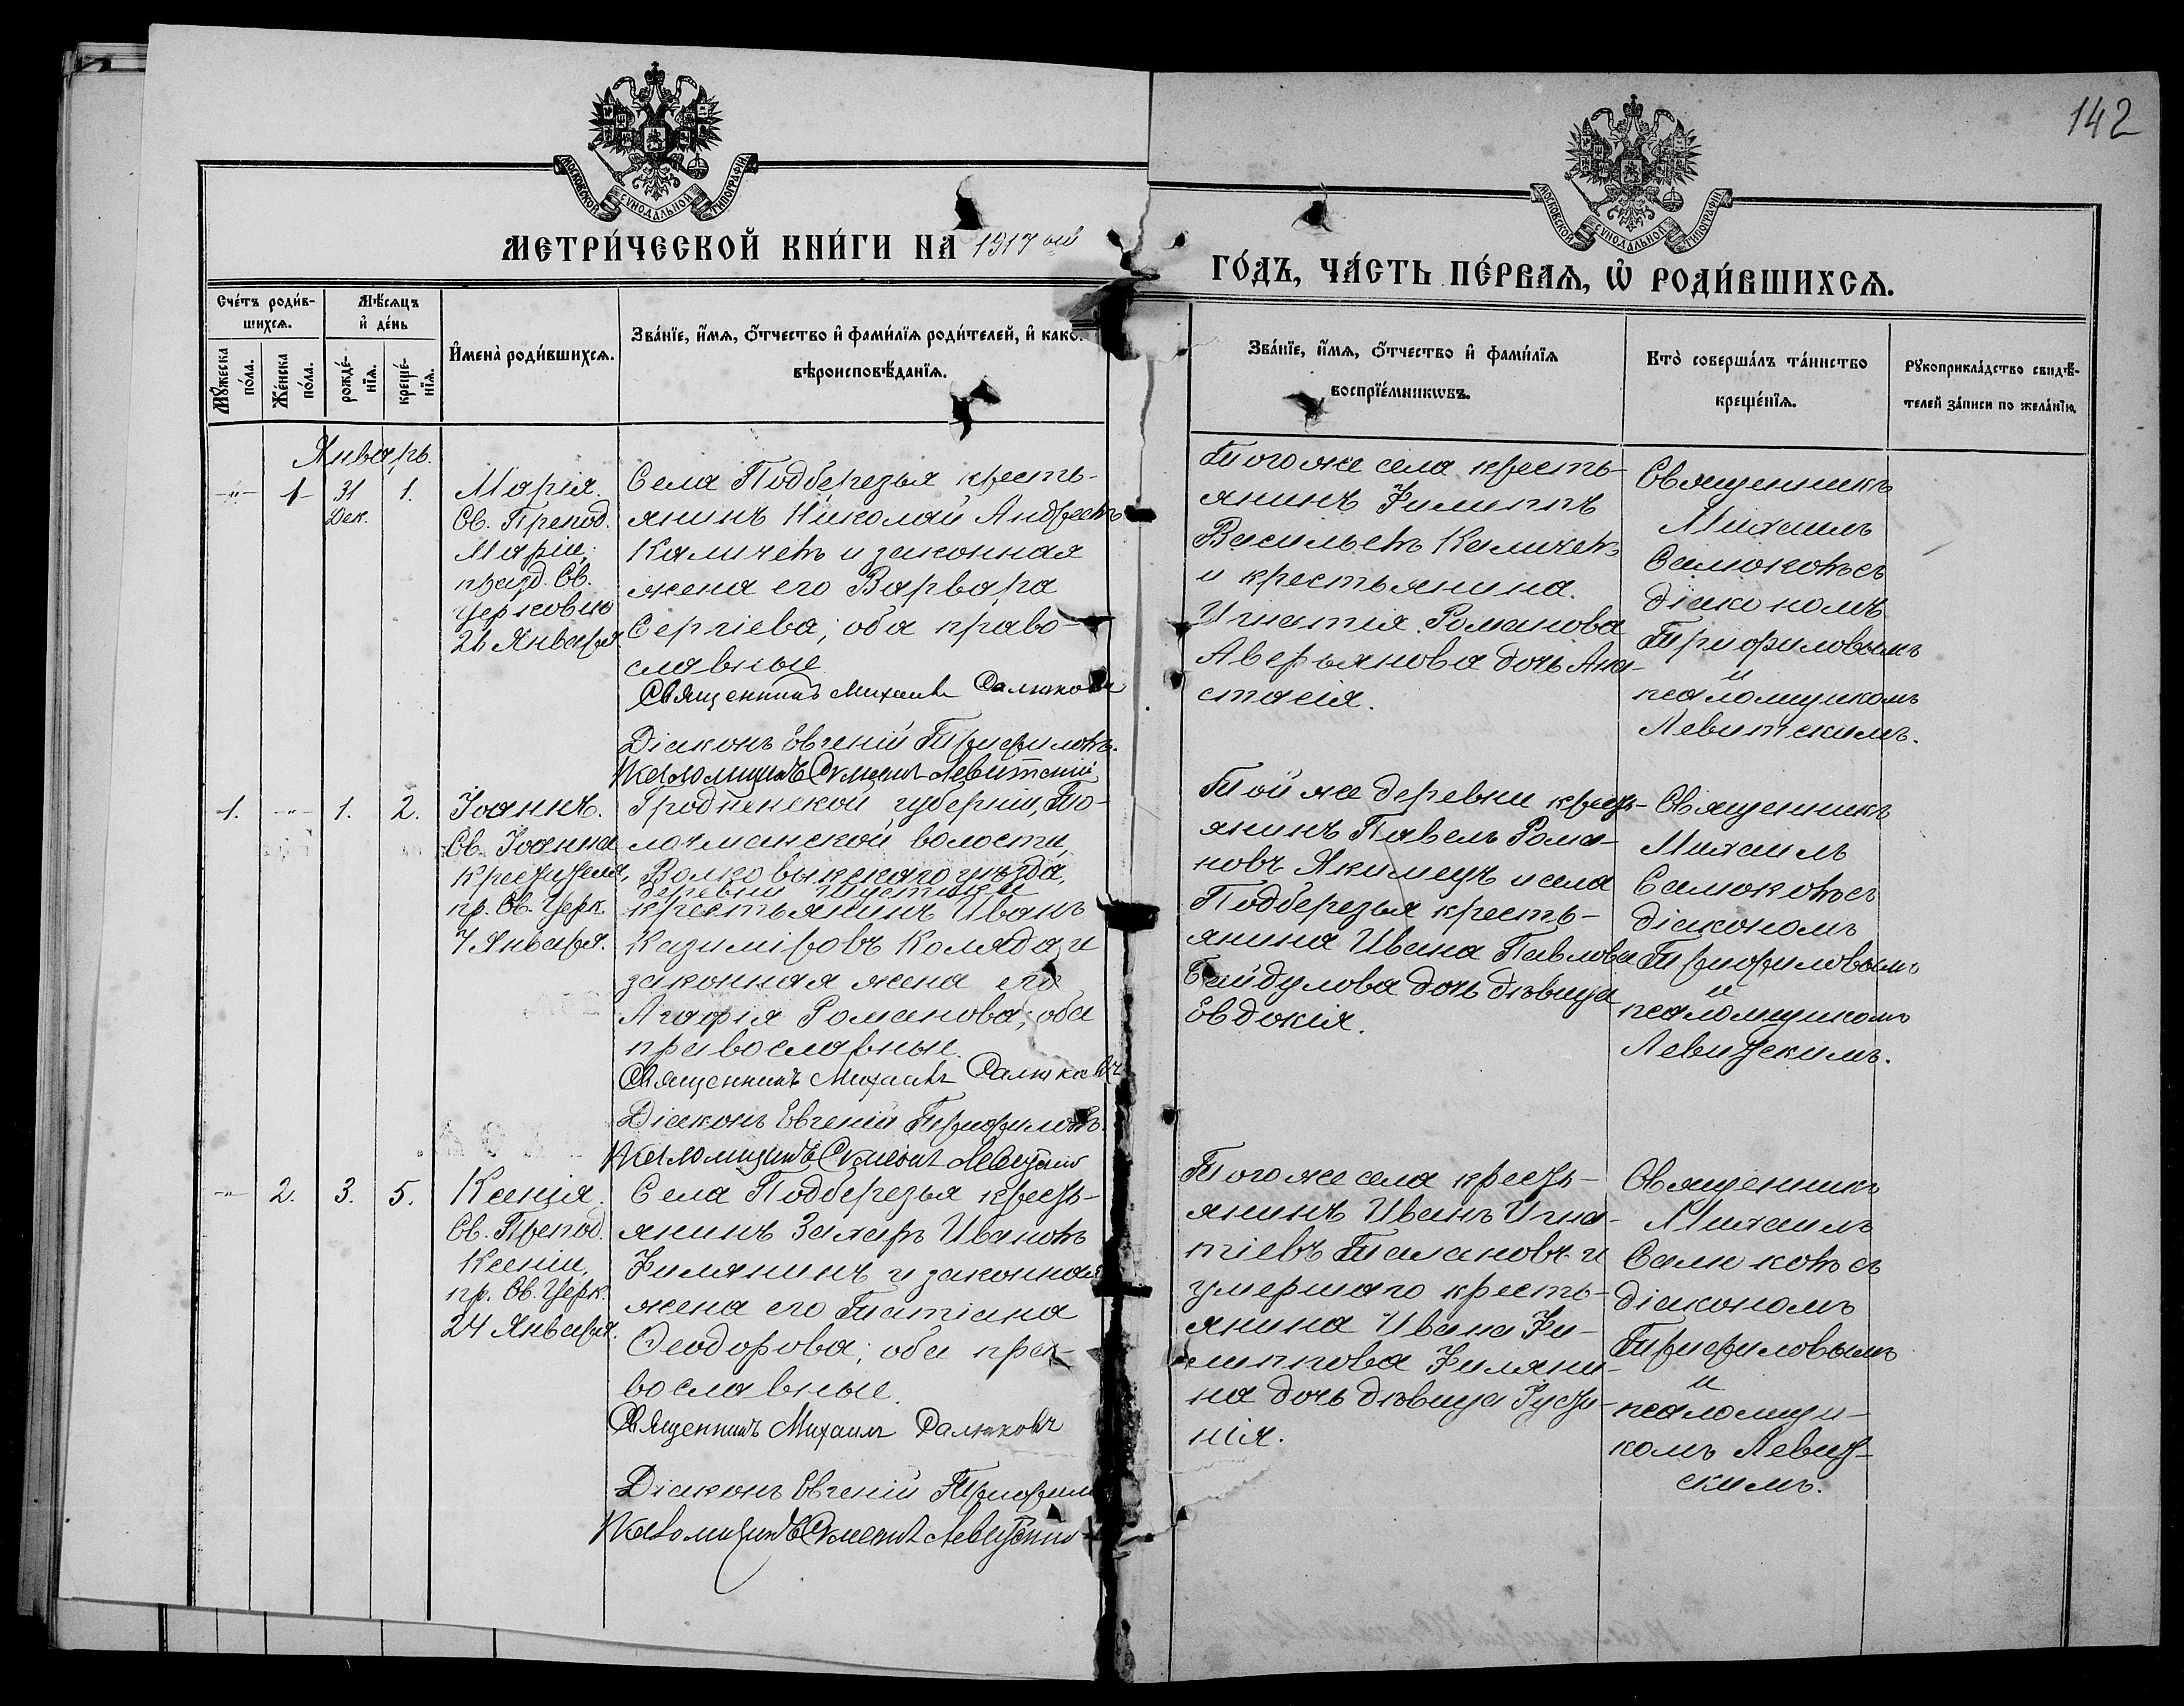 142
МОСКОВСКОЙ СѴНОДАЛЬНОЙ ТИПОГРАФІИ
МОСКОВСКОЙ СѴНОДАЛЬНОЙ ТИПОГРАФІИ
МЕТРИ́ЧЕСКОЙ КНИ́ГИ НА 1917 ый
ГО́ДЪ, ЧА́СТЬ ПЕ́РВАѦ, Ѡ҆ РОДИ́ВШИХСѦ.
Сче́тъ роди́в-
шихсѧ.
Мѣ́сяцъ
и҆ де́нь
Мꙋ́жеска
по́ла.
Же́нска
по́ла.
рожде́-
нїѧ.
креще́-
нїѧ.
И҆мена̀ роди́вшихсѧ.
Зва́нїе, и҆́мѧ, ѻ҆́тчество и҆ фами́лїѧ роди́телей, и҆ како́
вѣроисповѣ́данїѧ.
Зва́нїе, и҆́мѧ, ѻ҆́тчество и҆ фами́лїѧ
воспрїе́мникѡвъ.
Кто̀ соверша́лъ та́инство
креще́нїѧ.
Рꙋкоприкла́дство свидѣ́-
телей за́писи по жела́нїю.
Январь.
-"-
1
31
Дек.
1.
Марія.
Св. Препод.
Маріи,
празд. Св.
Церковью
26 Января.
Села Подберезья кресть-
янинъ Николай Андреевъ
Каличевъ и законная
жена его Варвара
Сергіева; оба право-
славные
Священникъ Михаилъ Салюковъ
Діаконъ Евгеній Трифиловъ.
Псаломщикъ Левитскій
Того же села кресть-
янинъ Филиппъ
Васильевъ Каличевъ
и крестьянина.
Игнатія Романова
Аверьянова дочь Ана-
стасія.
Священникъ
Михаилъ
Салюковъ съ
діакономъ
Трифиловымъ
и
псаломщикомъ
Левитскимъ.
1.
-"-
1.
2.
Іоаннъ.
Св. Іоанна
Крестителя,
пр. Св. Церк.
7 Января.
Гродненской губерніи, То-
лочманской волости,
Волковыскскаго уѣзда,
деревни
крестьянинъ Иванъ
Казиміровъ Коляда и
законная жена его
Агафія Романова; оба
православные.
Священникъ Михаилъ Салюковъ
Діаконъ Евгеній Трифиловъ.
Псаломщикъ Левитскій
Той же деревни кресть-
янинъ Павелъ Рома-
новъ Якимецъ и села
Подберезья кресть-
янина Ивана Павлова
Байдулова дочь дѣвица
Евдокія.
Священникъ
Михаилъ
Салюковъ съ
діакономъ
Трифиловымъ
и
псаломщикомъ
Левитскимъ.
-"-
2.
3.
5.
Ксенія.
Св. Препод.
Ксеніи,
пр. Св. Церк.
24 Января.
Села Подберезья кресть-
янинъ Захаръ Ивановъ
Филянинъ и законная
жена его Татіана
Ѳеодорова; оба пра-
вославные.
Священникъ Михаилъ Салюковъ
Діаконъ Евгеній Трифилов
Псаломщикъ Левитскій
Того же села кресть-
янинъ Иванъ Игна-
тіевъ Талановъ и
умершаго кресть-
янина Ивана Фи-
липпова Филяни-
на дочь дѣвица Русти-
нія.
Священникъ
Михаилъ
Салюковъ съ
діакономъ
Трифиловымъ
и
псаломщи-
комъ Левит-
скимъ.